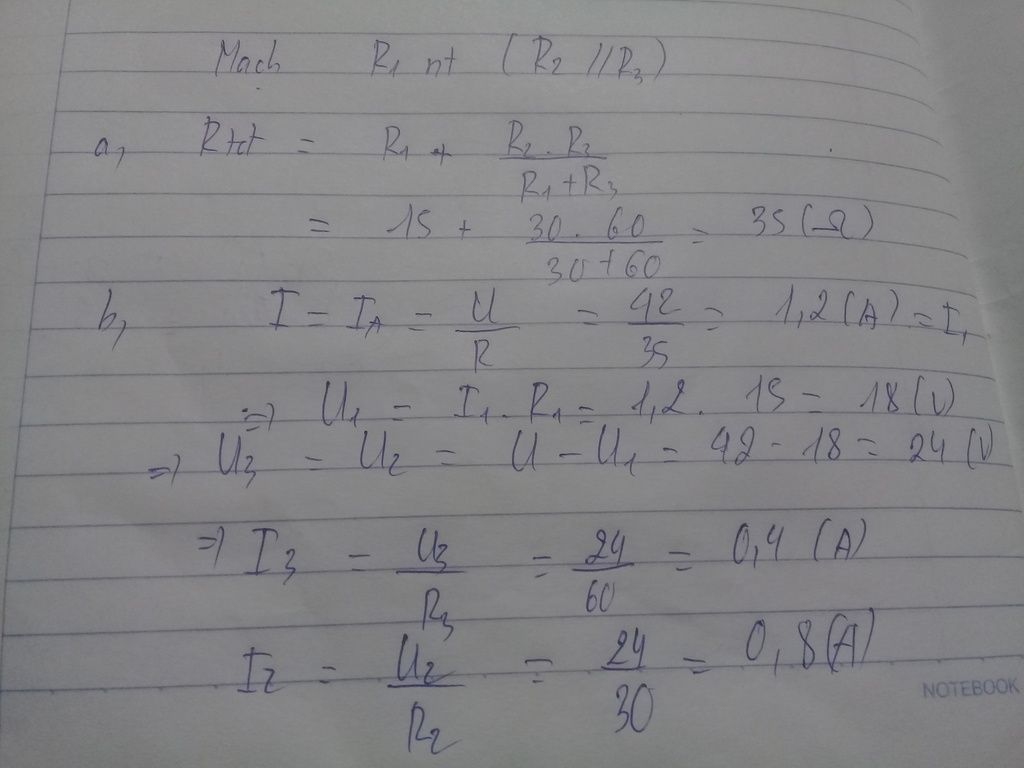 Mạch R1 nt (R2 // R3)
a, Rtđ = R1 + R2 . R2 / R1 + R3
= 15 + 30 . 60 / 30 + 60 = 35 (Ω)
b, I = IA = U / R = 42 / 35 = 1,2 (A) = I1
=> U1 = I1 . R1 = 1,2 . 15 = 18 (V)
=> U3 = U2 = U - U1 = 42 - 18 = 24 (V)
=> I3 = U3 / R3 = 24 / 60 = 0,4 (A)
I2 = U2 / R2 = 24 / 30 = 0,8 (A)
NOTEBOOK